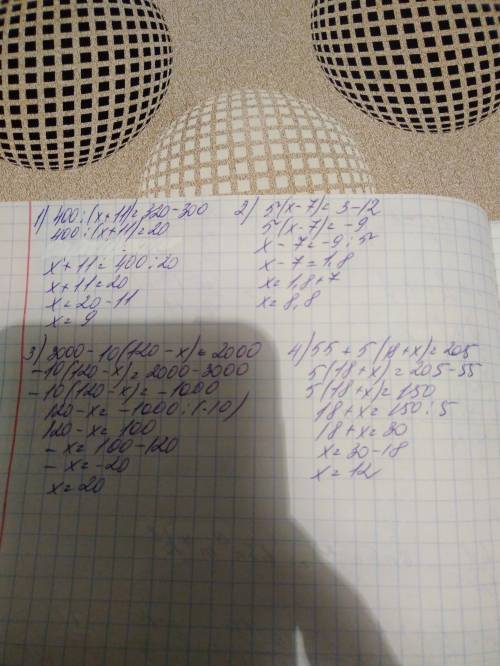 1) 400:(x+11)=320-300
400:(x+11)=20
x+11=400:20
x+11=20
x=20-11
x=9
2) 5(x-7)=3-12
5(x-7)=-9
x-7=-9:5
x-7=1,8
x=1,8+7
x=8,8
3) 3000-10(120-x)=2000
-10(120-x)=2000-3000
-10(120-x)=-1000
120-x=-1000:(-10)
120-x=100
-x=100-120
-x=-20
x=20
4) 55+5(18+x)=205
5(18+x)=205-55
5(18+x)=150
18+x=150:5
18+x=30
x=30-18
x=12